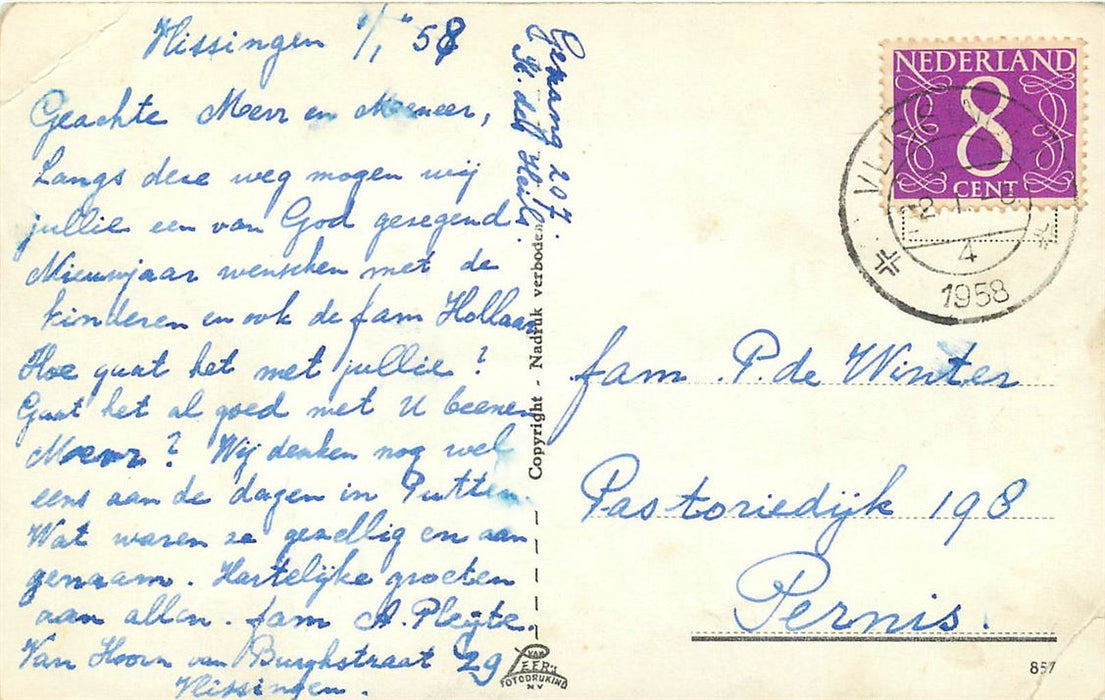 Vlissingen 1/1 '58
Geachte Mevr en Meneer,
Langs deze weg mogen wij
jullie een van God gezegend
Nieuwjaar wenschen met de
kinderen en ook de fam Hollaar
Hoe gaat het met jullie?
Gaat het al goed met U beenen
Mevr? Wij denken nog wel
eens aan de dagen in Putten.
Wat waren ze gezellig en aan
genaam. Hartelijke groeten
aan allen. fam A. Pleyte.
Van Hoorn van Burghstraat 29
Vlissingen.
Gezang 207.
Copyright - Nadruk verboden
VAN
LEER'S
FOTODRUKIND
N.V.
NEDERLAND
8
CENT
4
1958
fam. P. de Winter
Pastoriedijk 198
Pernis.
857